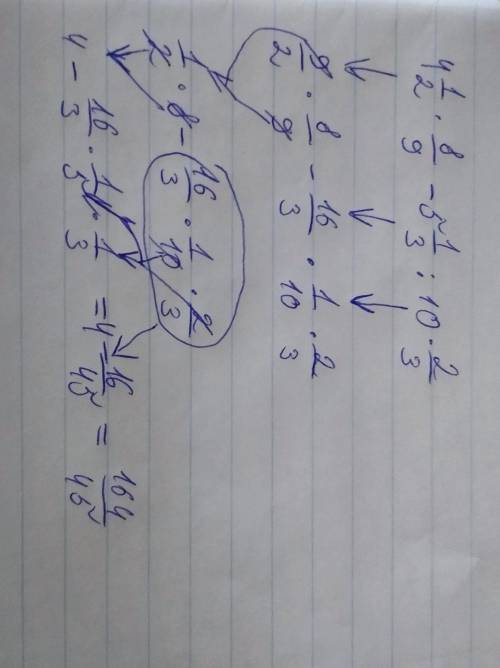 4 1/2 · 8/9 - 5 1/3 : 10 · 2/3
9/2 · 8/9 - 16/3 · 1/10 · 2/3
1/2 · 8 - 16/3 · 1/10 · 2/3
4 - 16/3 · 1/5 · 1/3 = 4 - 16/45 = 164/45